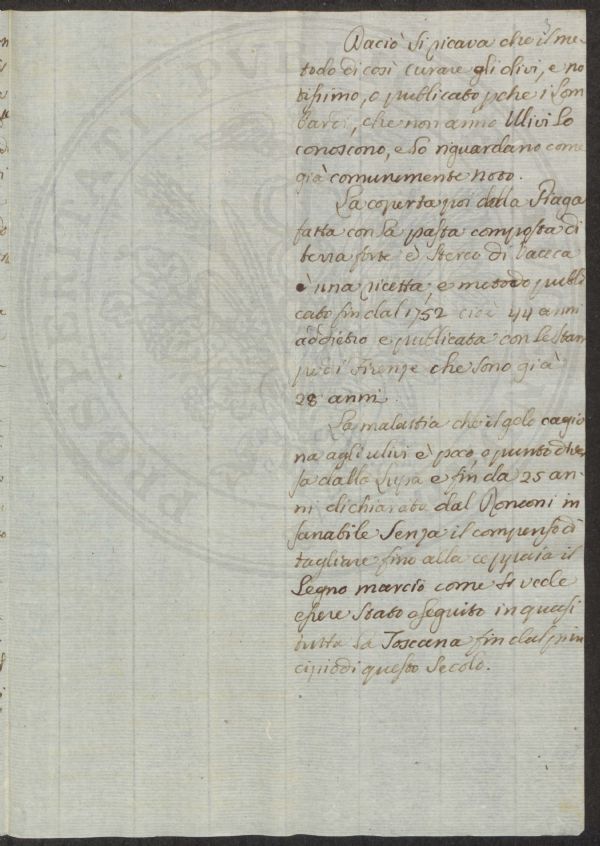 3
Da ciò si ricava che il me-
todo di così curare gli olivi, e no
tissimo, o publicato pche i Lom
bardi, che non anno Ulivi lo
conoscono, e lo riguardano come
già comunemente noto.
La coperta poi della Piaga
fatta con la pasta composta di
terra forte è sterco di Vacca
è una ricetta, e metodo publi
cato fin dal 1752 cioè 44 anni
addietro e publicata con le stam
pe di Firenze che sono già
28 anni.
La malattia che il gelo cagio
na agli ulivi è poco o punto diver
sa dalla Lupa e fin da 25 an-
ni dichiarata dal Ronconi in
sanabile senza il compenso di
tagliare fino alla ceppaia il
Legno marcio come si vede
essere stato eseguito in quasi
tutta la Toscana fin dal prin
cipio di questo Secolo.